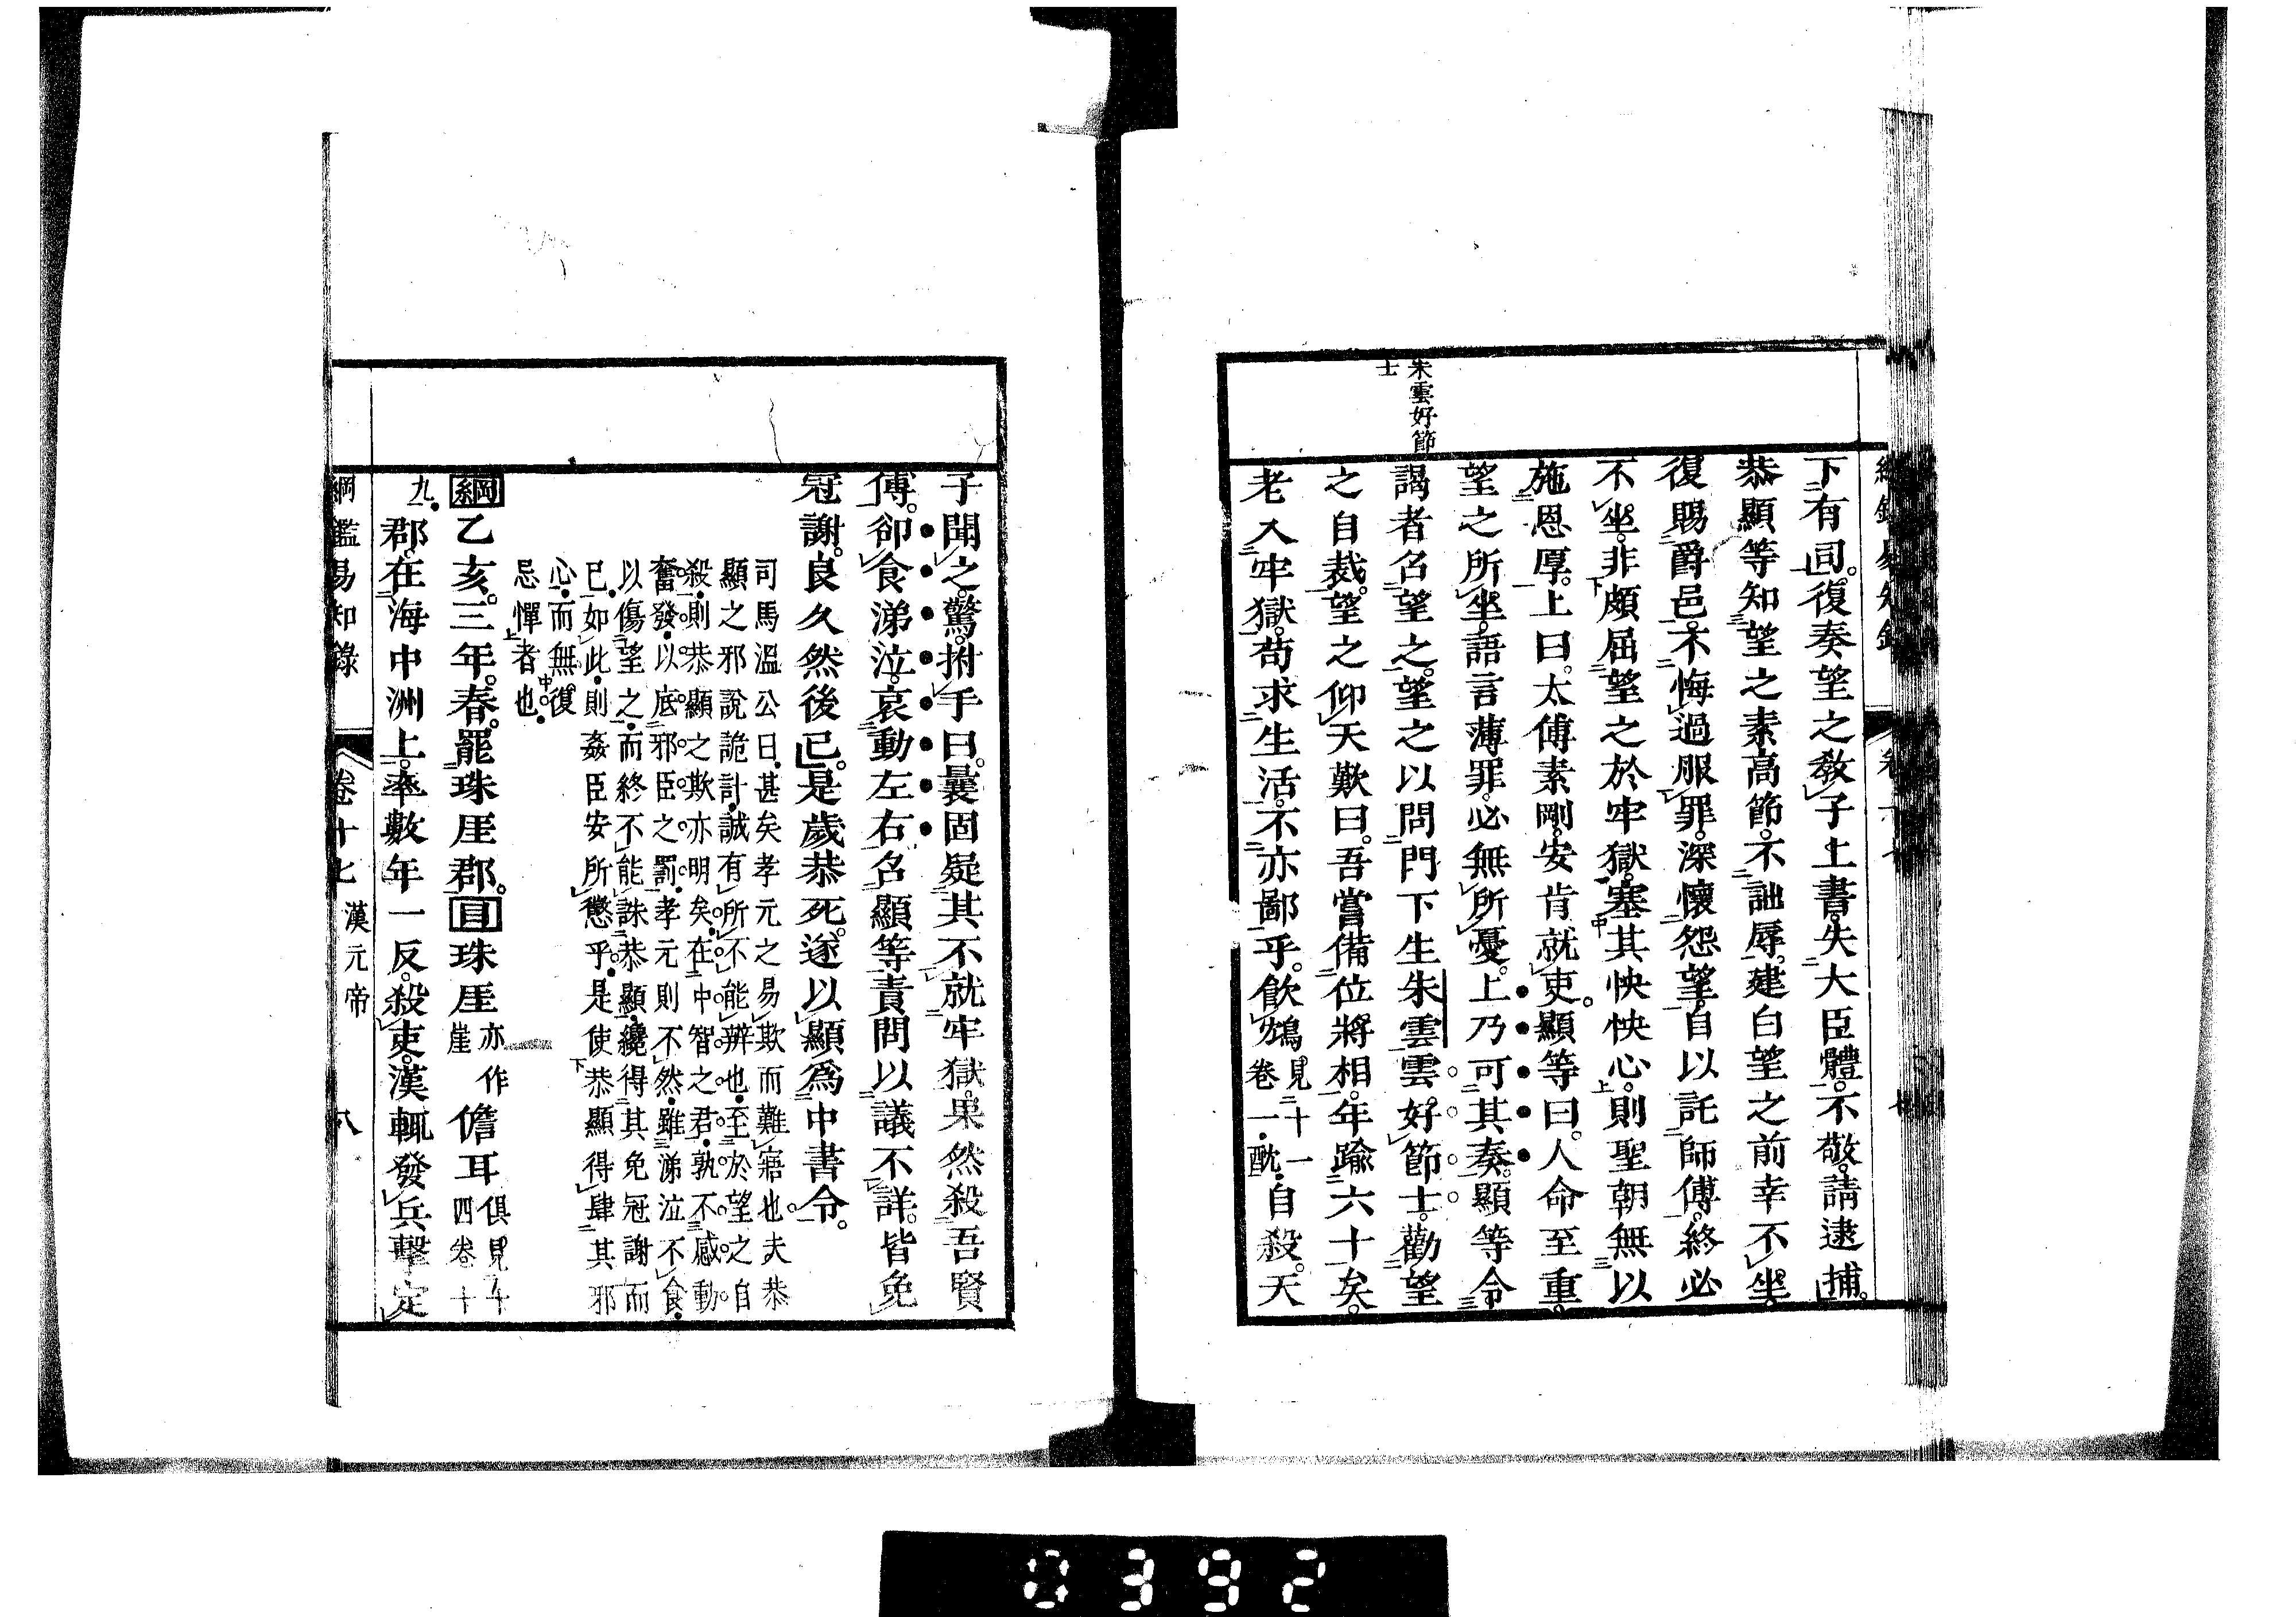 朱雲好節
士
下有司。復奏望之教子上書。失大臣體。不敬。請逮捕。
恭顯等知望之素高節。不詘辱。建白望之前幸不坐。
復賜爵邑。不悔過服罪。深懷怨望。自以託師傅。終必
不坐。非頗屈望之於牢獄。塞其怏怏心。則聖朝無以
施恩厚。上曰。太傅素剛。安肯就吏。顯等曰。人命至重。
望之所坐。語言薄罪。必無所憂。上乃可其奏。顯等令
謁者召望之。望之以問門下生朱雲。雲好節士。勸望
之自裁。望之仰天歎曰。吾嘗備位將相。年踰六十矣。
老入牢獄。苟求生活。不亦鄙乎。飲鴆見二十一卷一.酖.自殺。天
子聞之驚。拊手曰。曩固疑其不就牢獄。果然殺吾賢
傅。卻食涕泣。哀動左右。召顯等責問以議不詳。皆免
冠謝。良久然後已。是歲恭死。遂以顯爲中書令。
司馬溫公曰。甚矣孝元之易欺而難寤也。夫恭
顯之邪說詭計。誠有所不能辨也。至於望之自
殺。則恭顯之欺亦明矣。在中智之君。孰不感動
奮發。以底邪臣之罰。孝元則不然。雖涕泣不食。
以傷望之。而終不能誅恭顯。纔得其免冠謝而
已。如此。則姦臣安所懲乎。是使恭顯得肆其邪
心。而無復
忌憚者也。
綱乙亥。三年。春。罷珠厓郡。目珠厓亦作崖儋耳俱見十四卷十
九.郡。在海中洲上。率數年一反。殺吏。漢輒發兵擊定
綱鑑易知錄 卷十七 漢元帝 八
0392